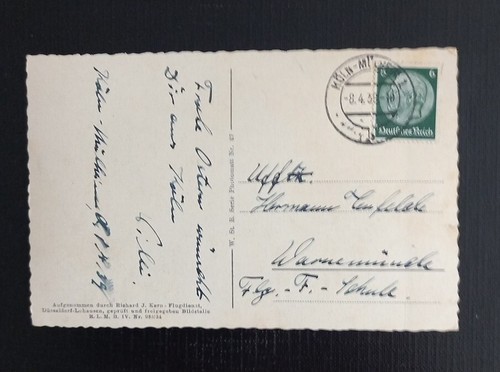 Frohe Ostern wünscht
Dir aus Köln
Köln-Mülheim,
Aufgenommen durch Richard J. Kern: Flugdienst,
Düsseldorf-Lohausen, geprüft und freigegeben Bildstelle
R. L. M. B. IV. Nr.
W. St. B. Serie Nr. 47
KÖLN-MÜLHEIM
-8.4.38-10
b
6 6
Deutsches Reich
Uffz.
Hermann
Warnemünde
Flg.-F.-Schule.